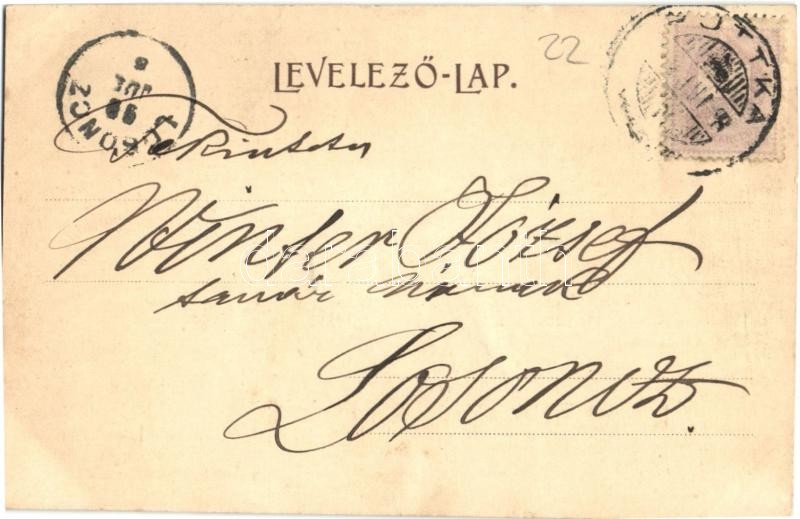 22
LEVELEZŐ-LAP.
RUTTKA
LOSONCZ
99 JUL 5
Tekintetes
Winter József
tanár úrnak
Losoncz.